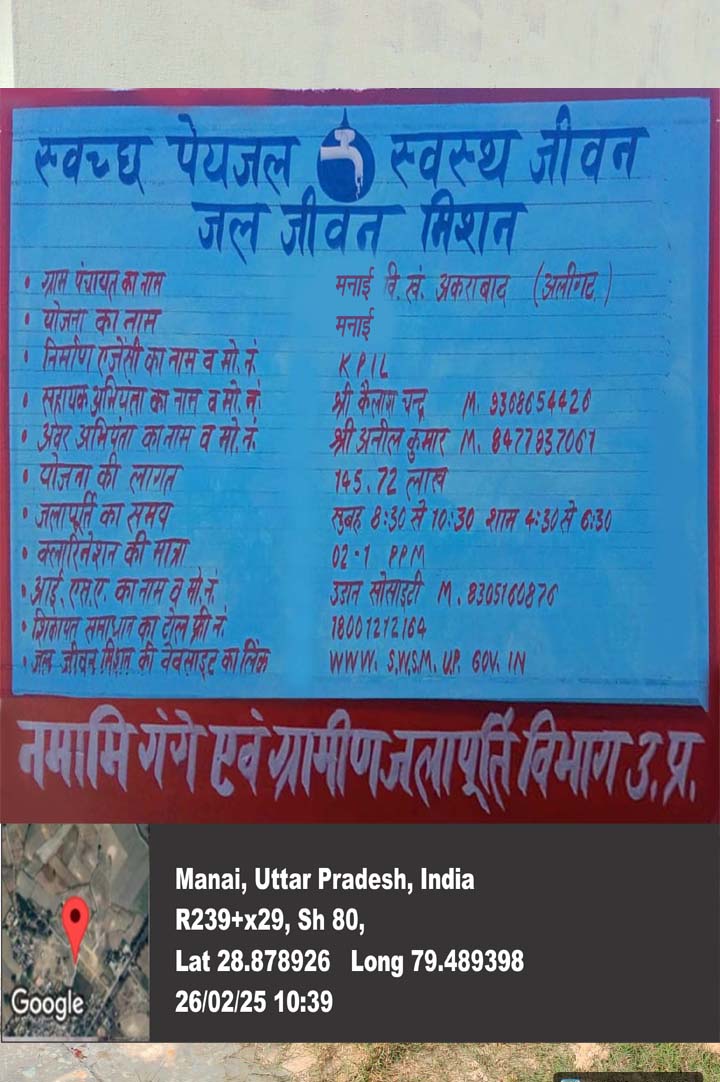 स्वच्छ पेयजल स्वस्थ जीवन
जल जीवन मिशन
• ग्राम पंचायत का नाम मनाई वि. खं. अकराबाद (अलीगढ़)
• योजना का नाम मनाई
• निर्माण एजेंसी का नाम व मो. नं. KPIL
• सहायक अभियंता का नाम व मो. नं. श्री कैलाश चन्द्र M. 9368654426
• अवर अभियंता का नाम व मो. नं. श्री अनील कुमार M. 8477837061
• योजना की लागत 145.72 लाख
• जलापूर्ति का समय सुबह 8:30 से 10:30 शाम 4:30 से 6:30
• क्लोरिनेशन की मात्रा 02-1 PPM
• आई. एस.ए. का नाम व मो. नं. उडान सोसाइटी M. 8305160876
• शिकायत समाधान का टोल फ्री नं. 18001212164
• जल जीवन मिशन की वेबसाइट का लिंक WWW. S.W.S.M. U.P. GOV. IN
नमामि गंगे एवं ग्रामीण जलापूर्ति विभाग उ.प्र.
Manai, Uttar Pradesh, India
R239+x29, Sh 80,
Lat 28.878926 Long 79.489398
26/02/25 10:39
Google